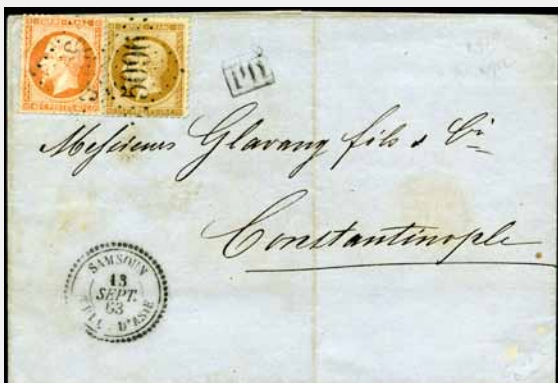 5096
PD
Messieurs Glavany fils & Cie
Constantinople
SAMSOUN
13
SEPT.
63
D'ASIE